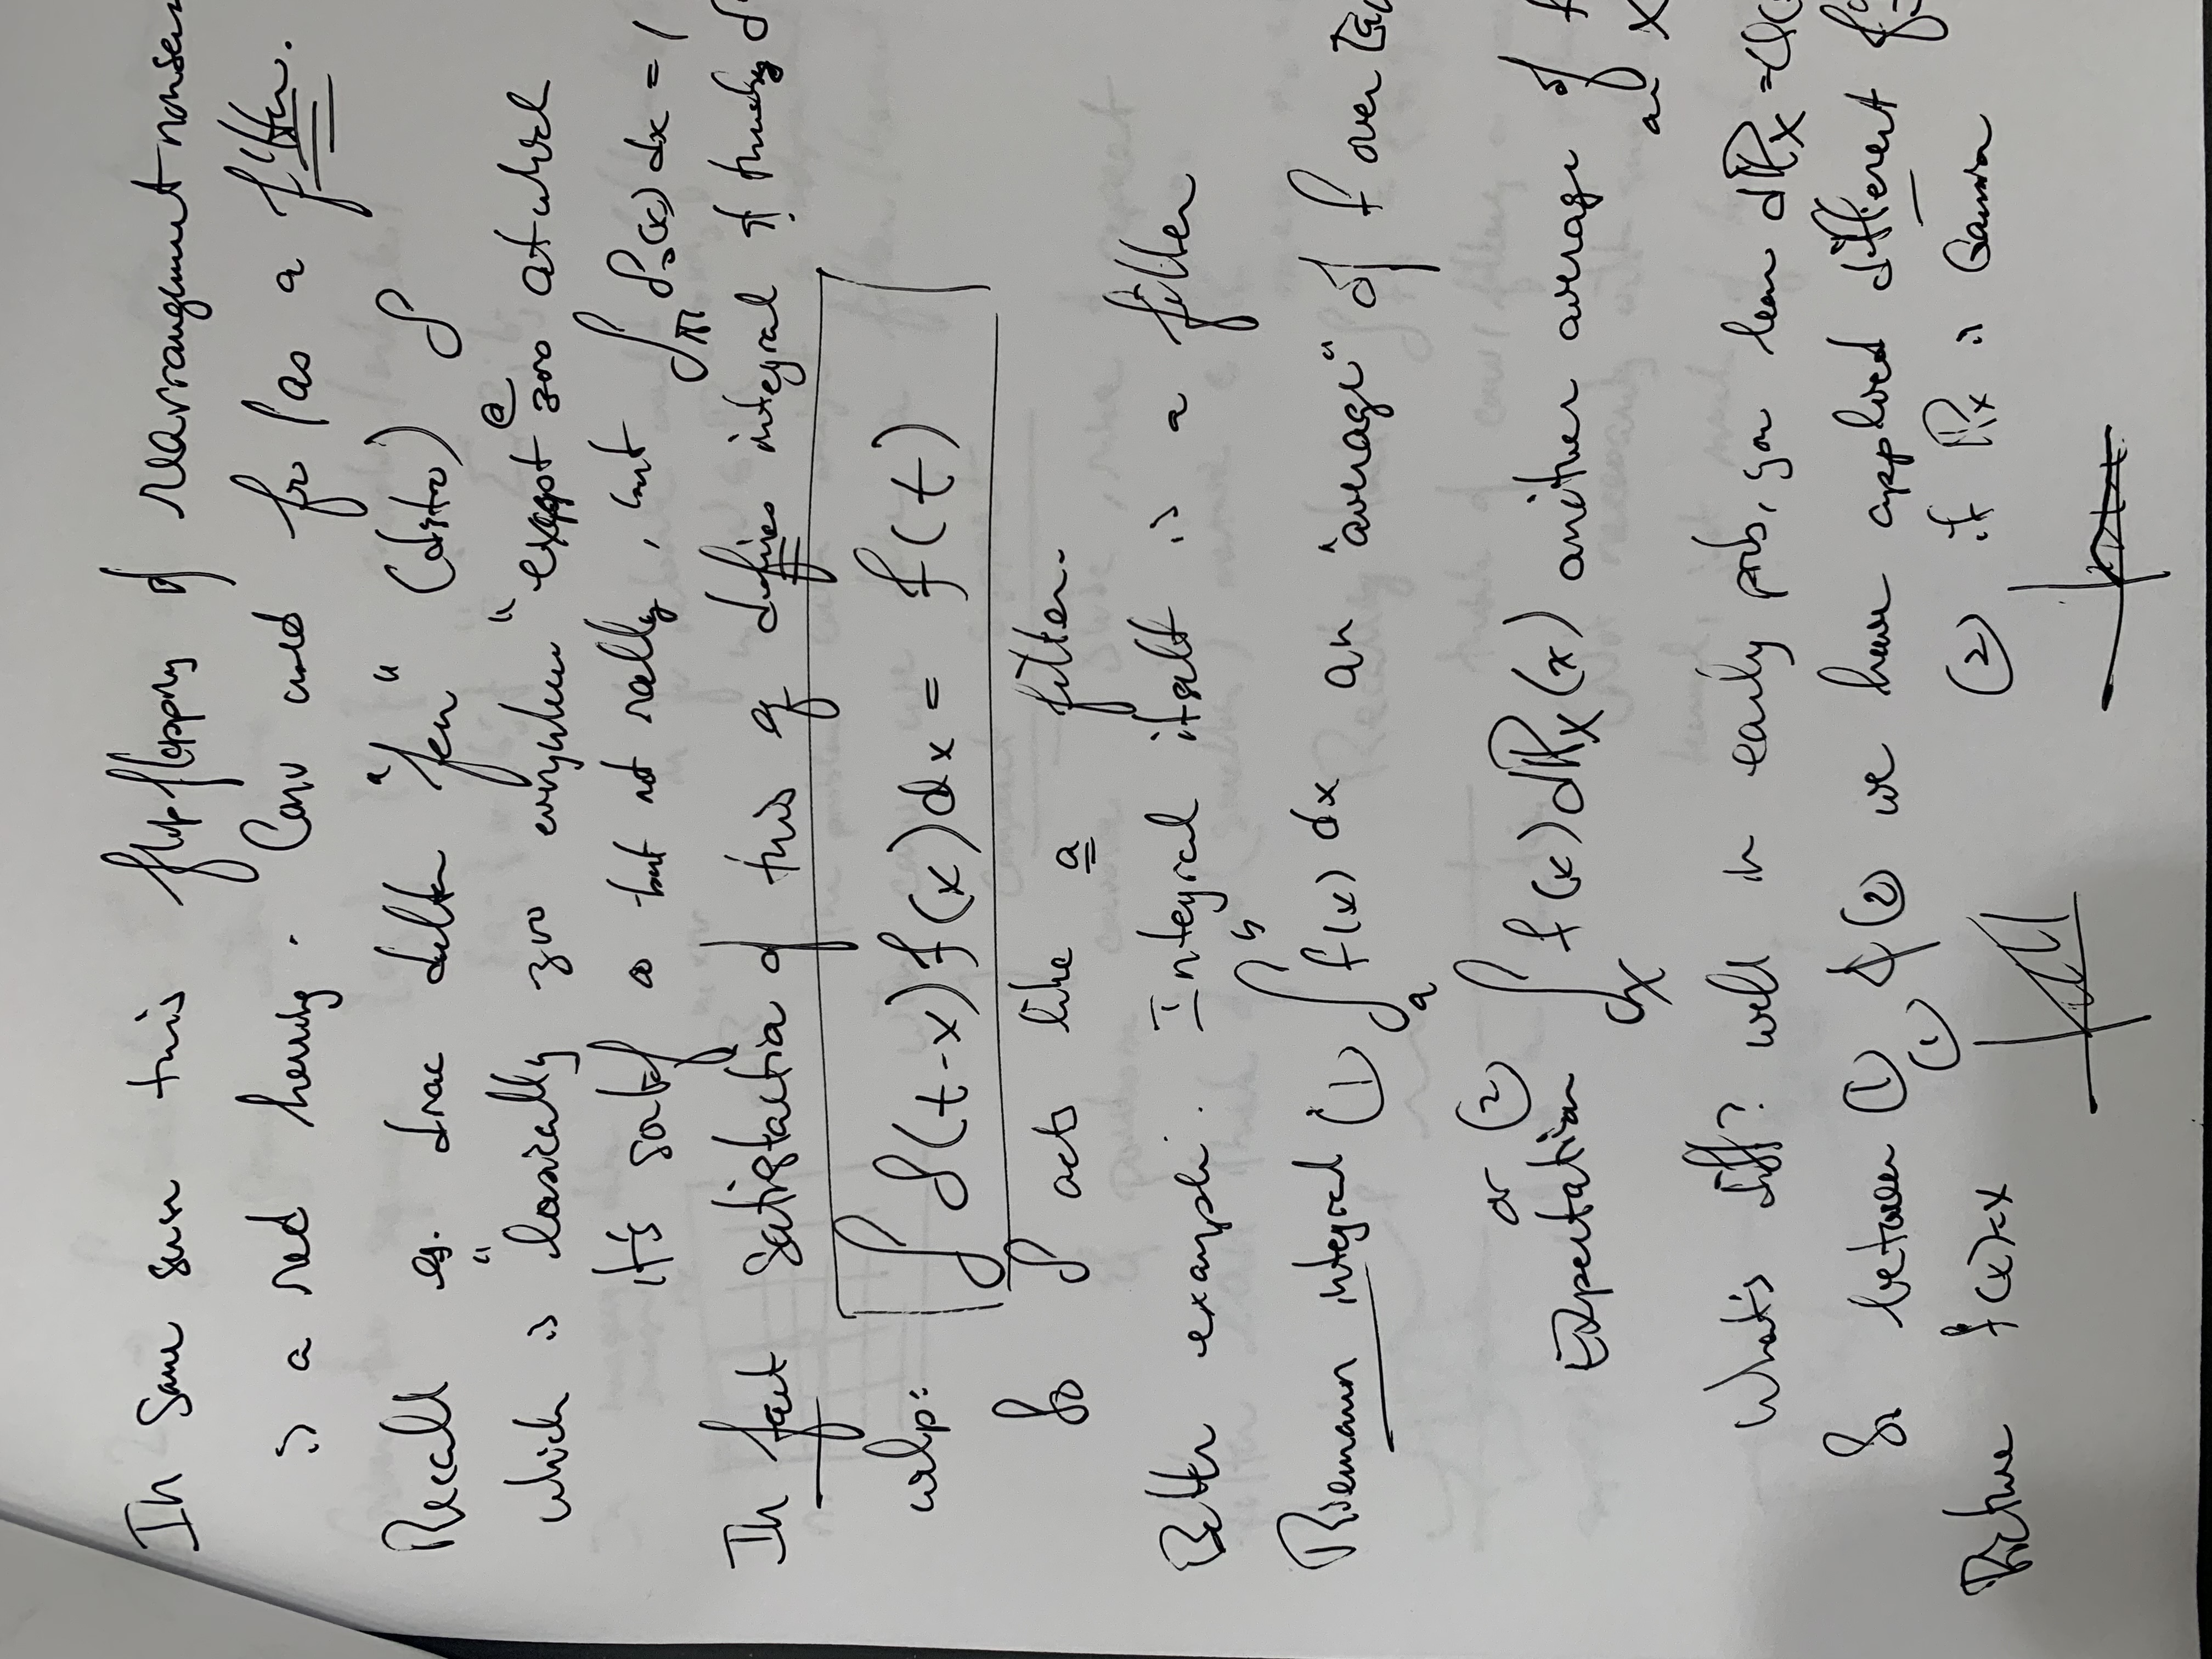 In some sense this flipfloppy & rearrangement nonsen
is a red herring. Conv used for/as a filter.
Recall eg. dirac delta "fcn" (distr) δ
which is "basically zero everywhere" except @ zero at which
it's sort of ∞ but not really, but ∫_ℝ δ₀(x) dx = 1
In fact satisfaction of this eq defines integral & thereby δ
welp: ∫ δ(t-x) f(x) dx = f(t)
So δ acts like a filter.
Better example: Integral itself is a filter
Riemann integral (1) ∫_a^b f(x) dx an "average" of f over [a,
or (2)
Expectation ∫_X f(x) dℙ_X(x) another average of f
on X
What's diff? well in early prob, you learn dℙ_X = φ(
So between (1) & (2) we have applied different
Picture f(x)=x (1) (2) if ℙ_X is Gaussian